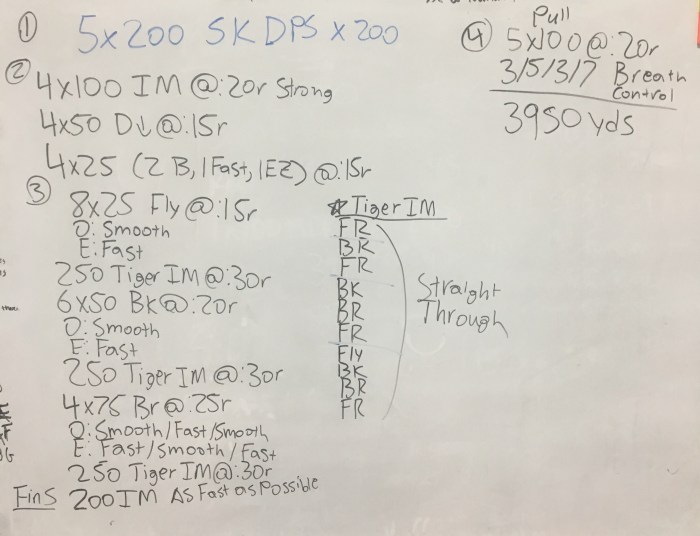 ① 5x200 SK DPS x 200
② 4x100 IM @:20r Strong
4x50 D↓@:15r
4x25 (2 B, 1 Fast, 1EZ) @:15r
③ 8x25 Fly @:15r
O: Smooth
E: Fast
250 Tiger IM @:30r
6x50 BK@:20r
O: Smooth
E: Fast
250 Tiger IM @:30r
4x75 Br @:25r
O: Smooth/Fast/Smooth
E: Fast/Smooth/Fast
250 Tiger IM@:30r
Fins 200 IM As Fast as Possible
☆ Tiger IM
FR
BK
FR
BK
BR
FR
Fly
BK
BR
FR
Straight
Through
Pull
④ 5x100@:20r
3/5/3/7 Breath
Control
3950 yds